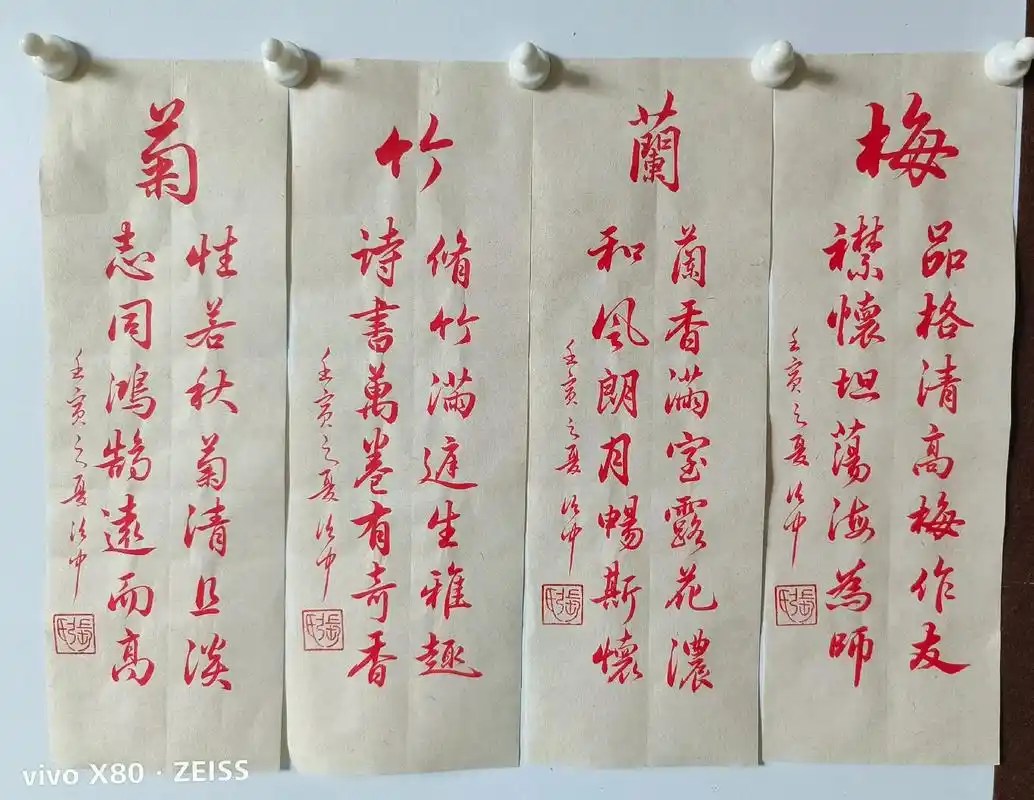 梅
品格清高梅作友
襟懷坦蕩海為師
壬寅之夏
蘭
蘭香滿室露花濃
和風朗月暢斯懷
壬寅之夏
竹
脩竹滿庭生雅趣
诗書萬卷有奇香
壬寅之夏
菊
性若秋菊清且淡
志同鴻鵠遠而高
壬寅之夏
vivo X80 · ZEISS